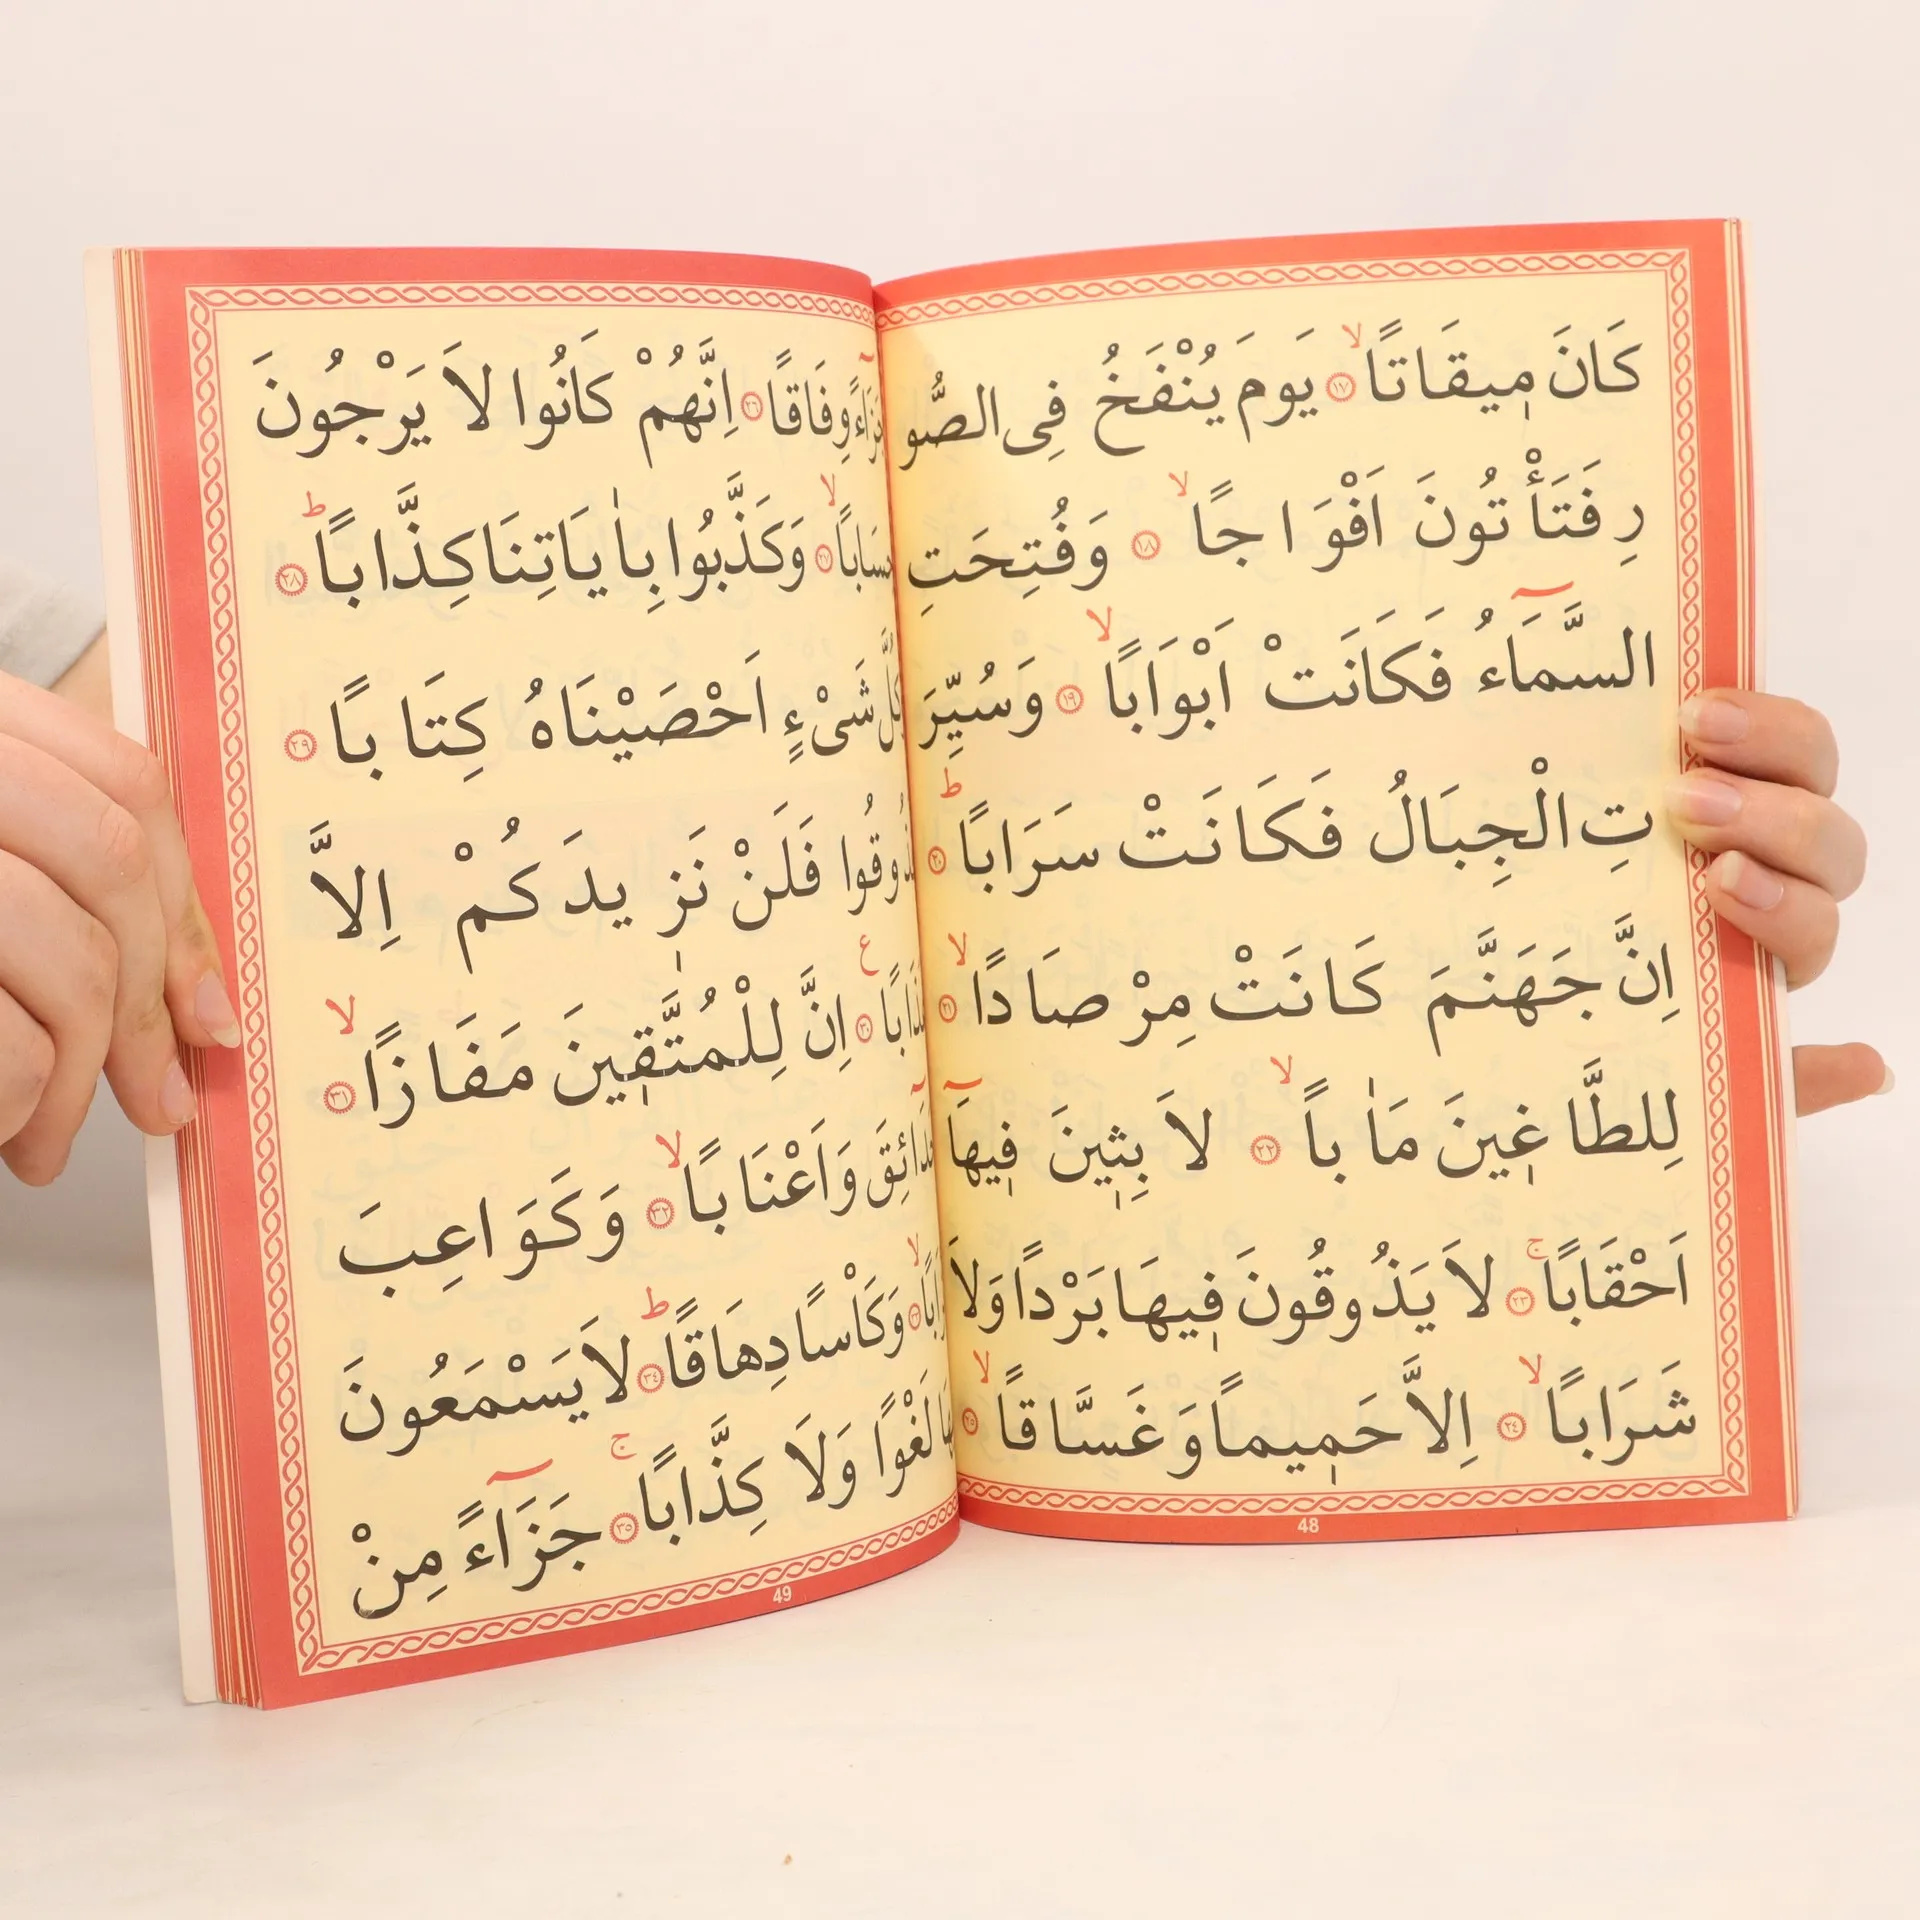 كَانَ مِيقَاتًا ﴿١٧﴾ لا يَوْمَ يُنْفَخُ فِى الصُّو
رِ فَتَأْتُونَ اَفْوَاجًا لا ﴿١٨﴾ وَفُتِحَتِ
السَّمَآءُ فَكَانَتْ اَبْوَابًا لا ﴿١٩﴾ وَسُيِّرَ
تِ الْجِبَالُ فَكَانَتْ سَرَابًا ط ﴿٢٠﴾
اِنَّ جَهَنَّمَ كَانَتْ مِرْصَادًا لا ﴿٢١﴾
لِلطَّاغِينَ مَاٰبًا لا ﴿٢٢﴾ لاَبِثِينَ فِيهَآ
اَحْقَابًا ج ﴿٢٣﴾ لاَ يَذُوقُونَ فِيهَا بَرْدًا وَلاَ
شَرَابًا لا ﴿٢٤﴾ اِلاَّ حَمِيمًا وَغَسَّاقًا لا ﴿٢٥﴾
48
جَزَآءً وِفَاقًا ﴿٢٦﴾ اِنَّهُمْ كَانُوا لاَ يَرْجُونَ
حِسَابًا لا ﴿٢٧﴾ وَكَذَّبُوا بِاٰيَاتِنَا كِذَّابًا ط ﴿٢٨﴾
كُلَّ شَىْءٍ اَحْصَيْنَاهُ كِتَابًا ﴿٢٩﴾
فَذُوقُوا فَلَنْ نَزِيدَكُمْ اِلاَّ
عَذَابًا ع ﴿٣٠﴾ اِنَّ لِلْمُتَّقِينَ مَفَازًا لا ﴿٣١﴾
حَدَآئِقَ وَاَعْنَابًا لا ﴿٣٢﴾ وَكَوَاعِبَ
اَتْرَابًا لا ﴿٣٣﴾ وَكَاْسًا دِهَاقًا ط ﴿٣٤﴾ لاَ يَسْمَعُونَ
فِيهَا لَغْوًا وَلَا كِذَّابًا ج ﴿٣٥﴾ جَزَآءً مِنْ
49